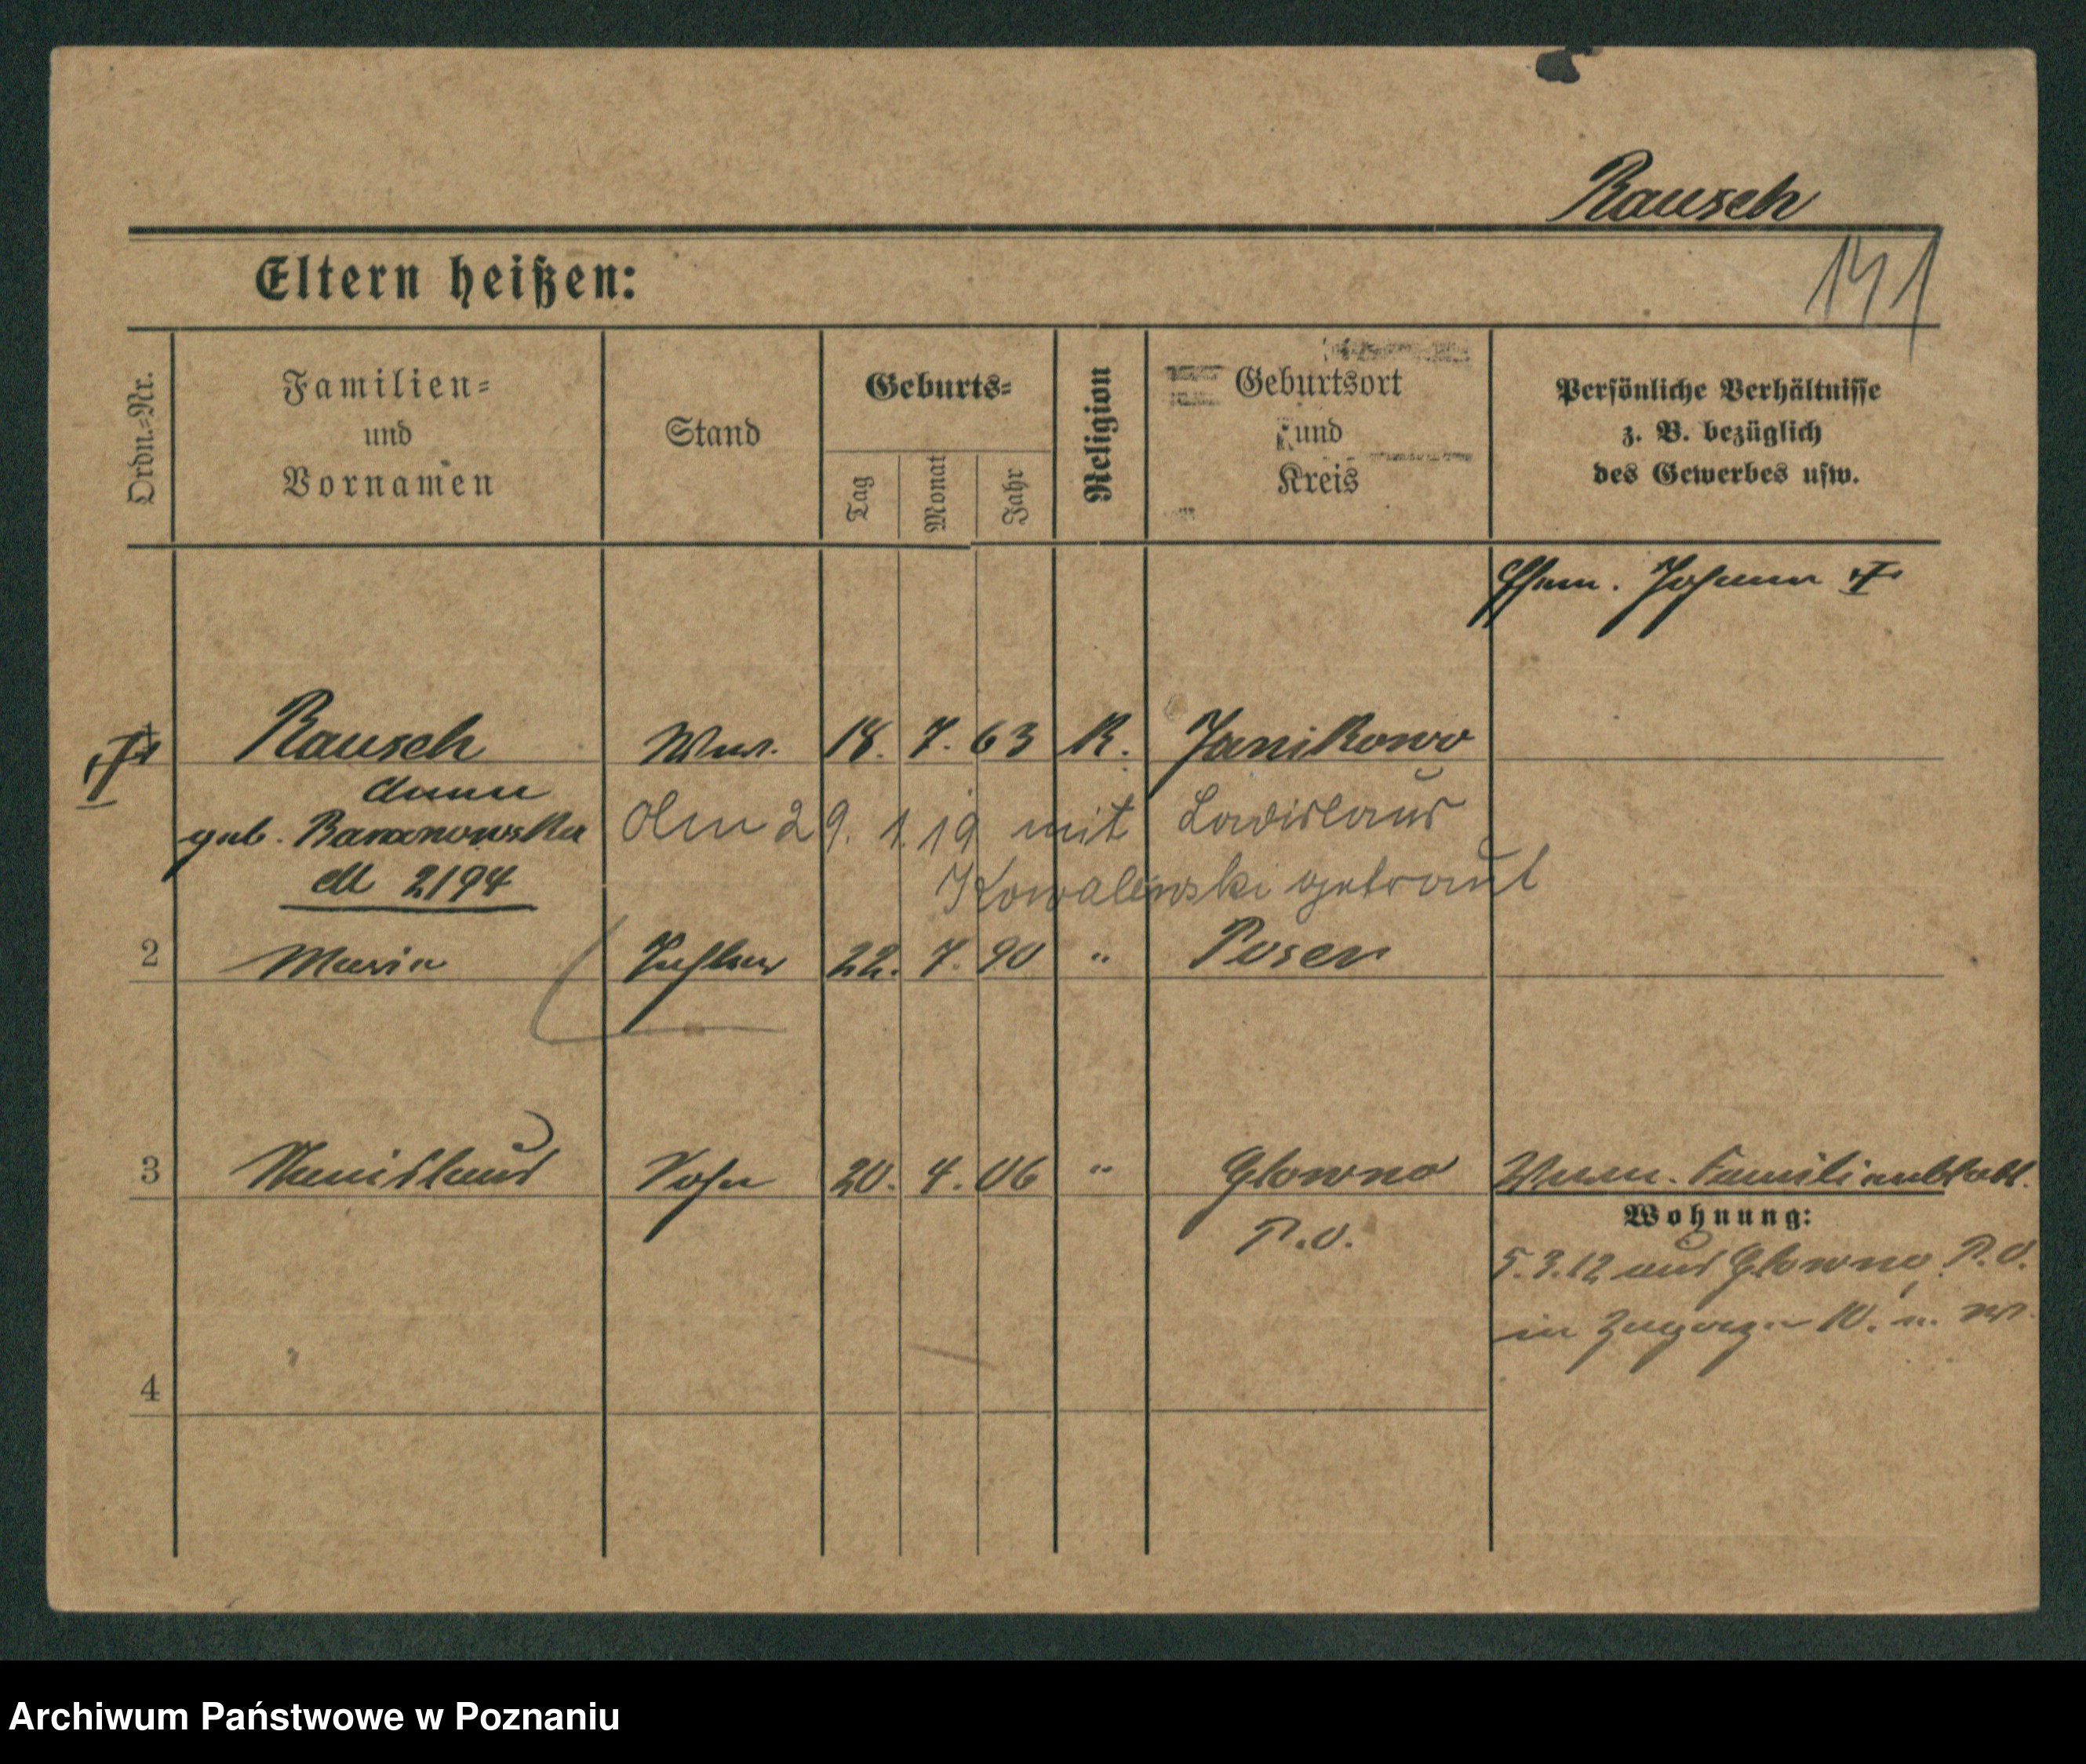 Rausch
141
Eltern heißen:
Ordn.-Nr.
Familien-
und
Vornamen
Stand
Geburts-
Tag
Monat
Jahr
Religion
Geburtsort
und
Kreis
Persönliche Verhältnisse
z. B. bezüglich
des Gewerbes usw.
Ehem. Johann †
† Rausch Wwe. 18. 7. 63 K. Janikowo
Anna
geb. Baranowska
M 2194
Am 29. 1. 19 mit Ladislaus
Kowalewski getraut
2 Maria Tochter 22. 7. 90 " Posen
3 Stanislaus Sohn 20. 4. 06 " Glowno
P.O.
Familienblatt.
Wohnung:
5.3.12 aus Glowno P.O.
in Zugezogen 10.
4
Archiwum Państwowe w Poznaniu